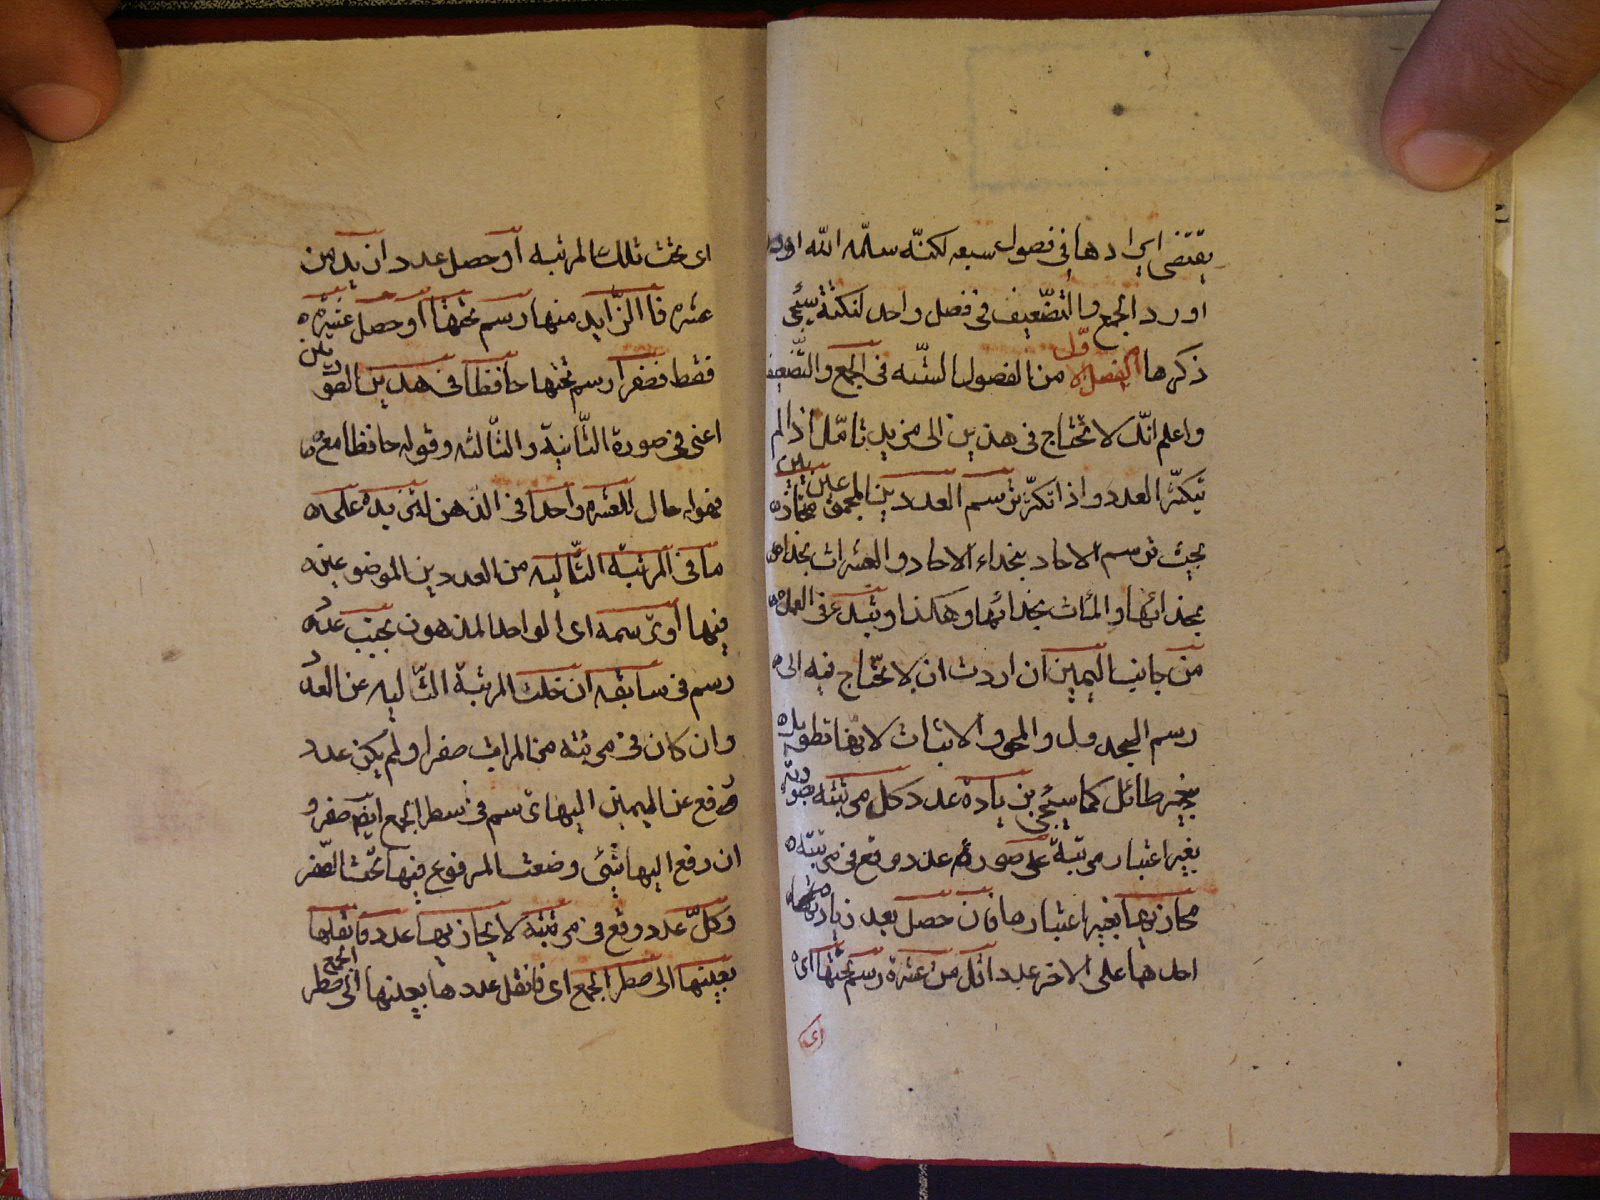 يقتضى ايرادها فى فصول سبعه لكنّه سلّمه الله
اورد الجمع والتضّعيف فى فصل واحد لنكتة سيجى
ذكرها الفصل الاوّل من الفصول الستّه فى الجمع والتّضعيف
واعلم انّك لا تحتاج فى هذين الى مزيد تامّل اذا لم
تيكثّر العدد واذا تكثّر ترسم العددين المجموعين متحاذيين
بحيث ترسم الاحاد بحذاء الاحاد والعشرات بحذاء
بحذائها والمئات بحذائها وهكذا وتبدء فى العمل
من جانب اليمين ان اردت ان لا تحتاج فيه الى
رسم الجدول والمحو والاثبات لانها تطويل
بغير طائل كما سيجى بزيادة عدد كل مرتبته صورته
بغير اعتبار مرتبة على صورة عدد وقع فى مرتبته
محاذيها بغير اعتبارها فان حصل بعد زيادة
احدهما على الاخر عدد اقل من عشرة رسم تحتها اى
اى
اى تحت تلك المرتبه او حصل عدد ازيد من
عشره فا الزّايد منها رسم تحتها او حصل عشره
فقط فصفرا رسم تحتها حافظا فى هذين الصورتين
اعنى فى صورة الثّانية والثّالثه وقوله حافظا مع
فهو له حال للعشره واحدا فى الذهن لتزيده على
ما فى المرتبة التّاليه من العددين الموضوعين
فيها او ترسمه اى الواحد المذهون بجنب عدد
رسم فى سابقه ان خلت المرتبة التّاليه عن العدد
وان كان فى مرتبته من المراتب صفرا ولم يكن عدد
رفع عن اليمين اليها ترسم فى سطر الجمع ايضا صفر و
ان رفع اليها شئى وضعت المرفوع فيها تحت الصّفر
وكلّ عدد وقع فى مرتبته لا يحاذيها عدد فانقلها
بعينها الى سطر الجمع اى فانقل عددها بعينها الى سطر الجمع